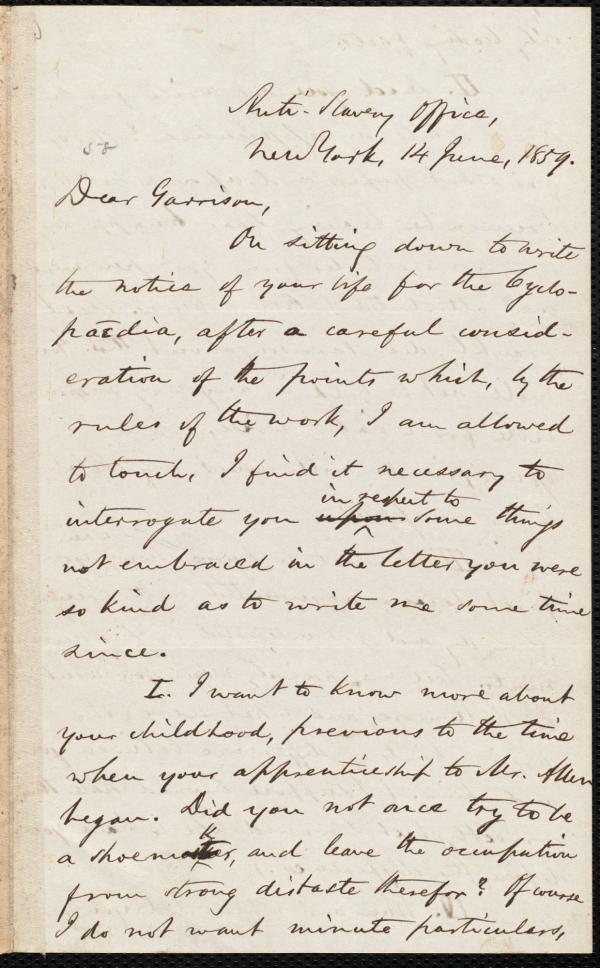 Anti-Slavery Office,
New York, 14 June, 1859.
58
Dear Garrison,
On sitting down to write
the notice of your life for the Cyclo-
pædia, after a careful consid-
eration of the points which, by the
rules of the work, I am allowed
to touch, I find it necessary to
in respect to
interrogate you upon some things
not embraced in the letter you were
so kind as to write me some time
since.
I. I want to know more about
your childhood, previous to the time
when your apprenticeship to Mr. Allen
began. Did you not once try to be
a shoemaker, and leave the occupation
from strong distaste therefor? Of course
I do not want minute particulars,